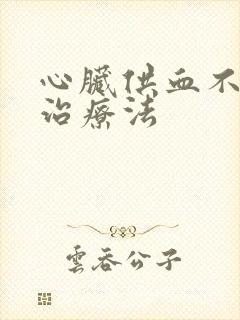 心臟供血不
治療法
雲吞公子